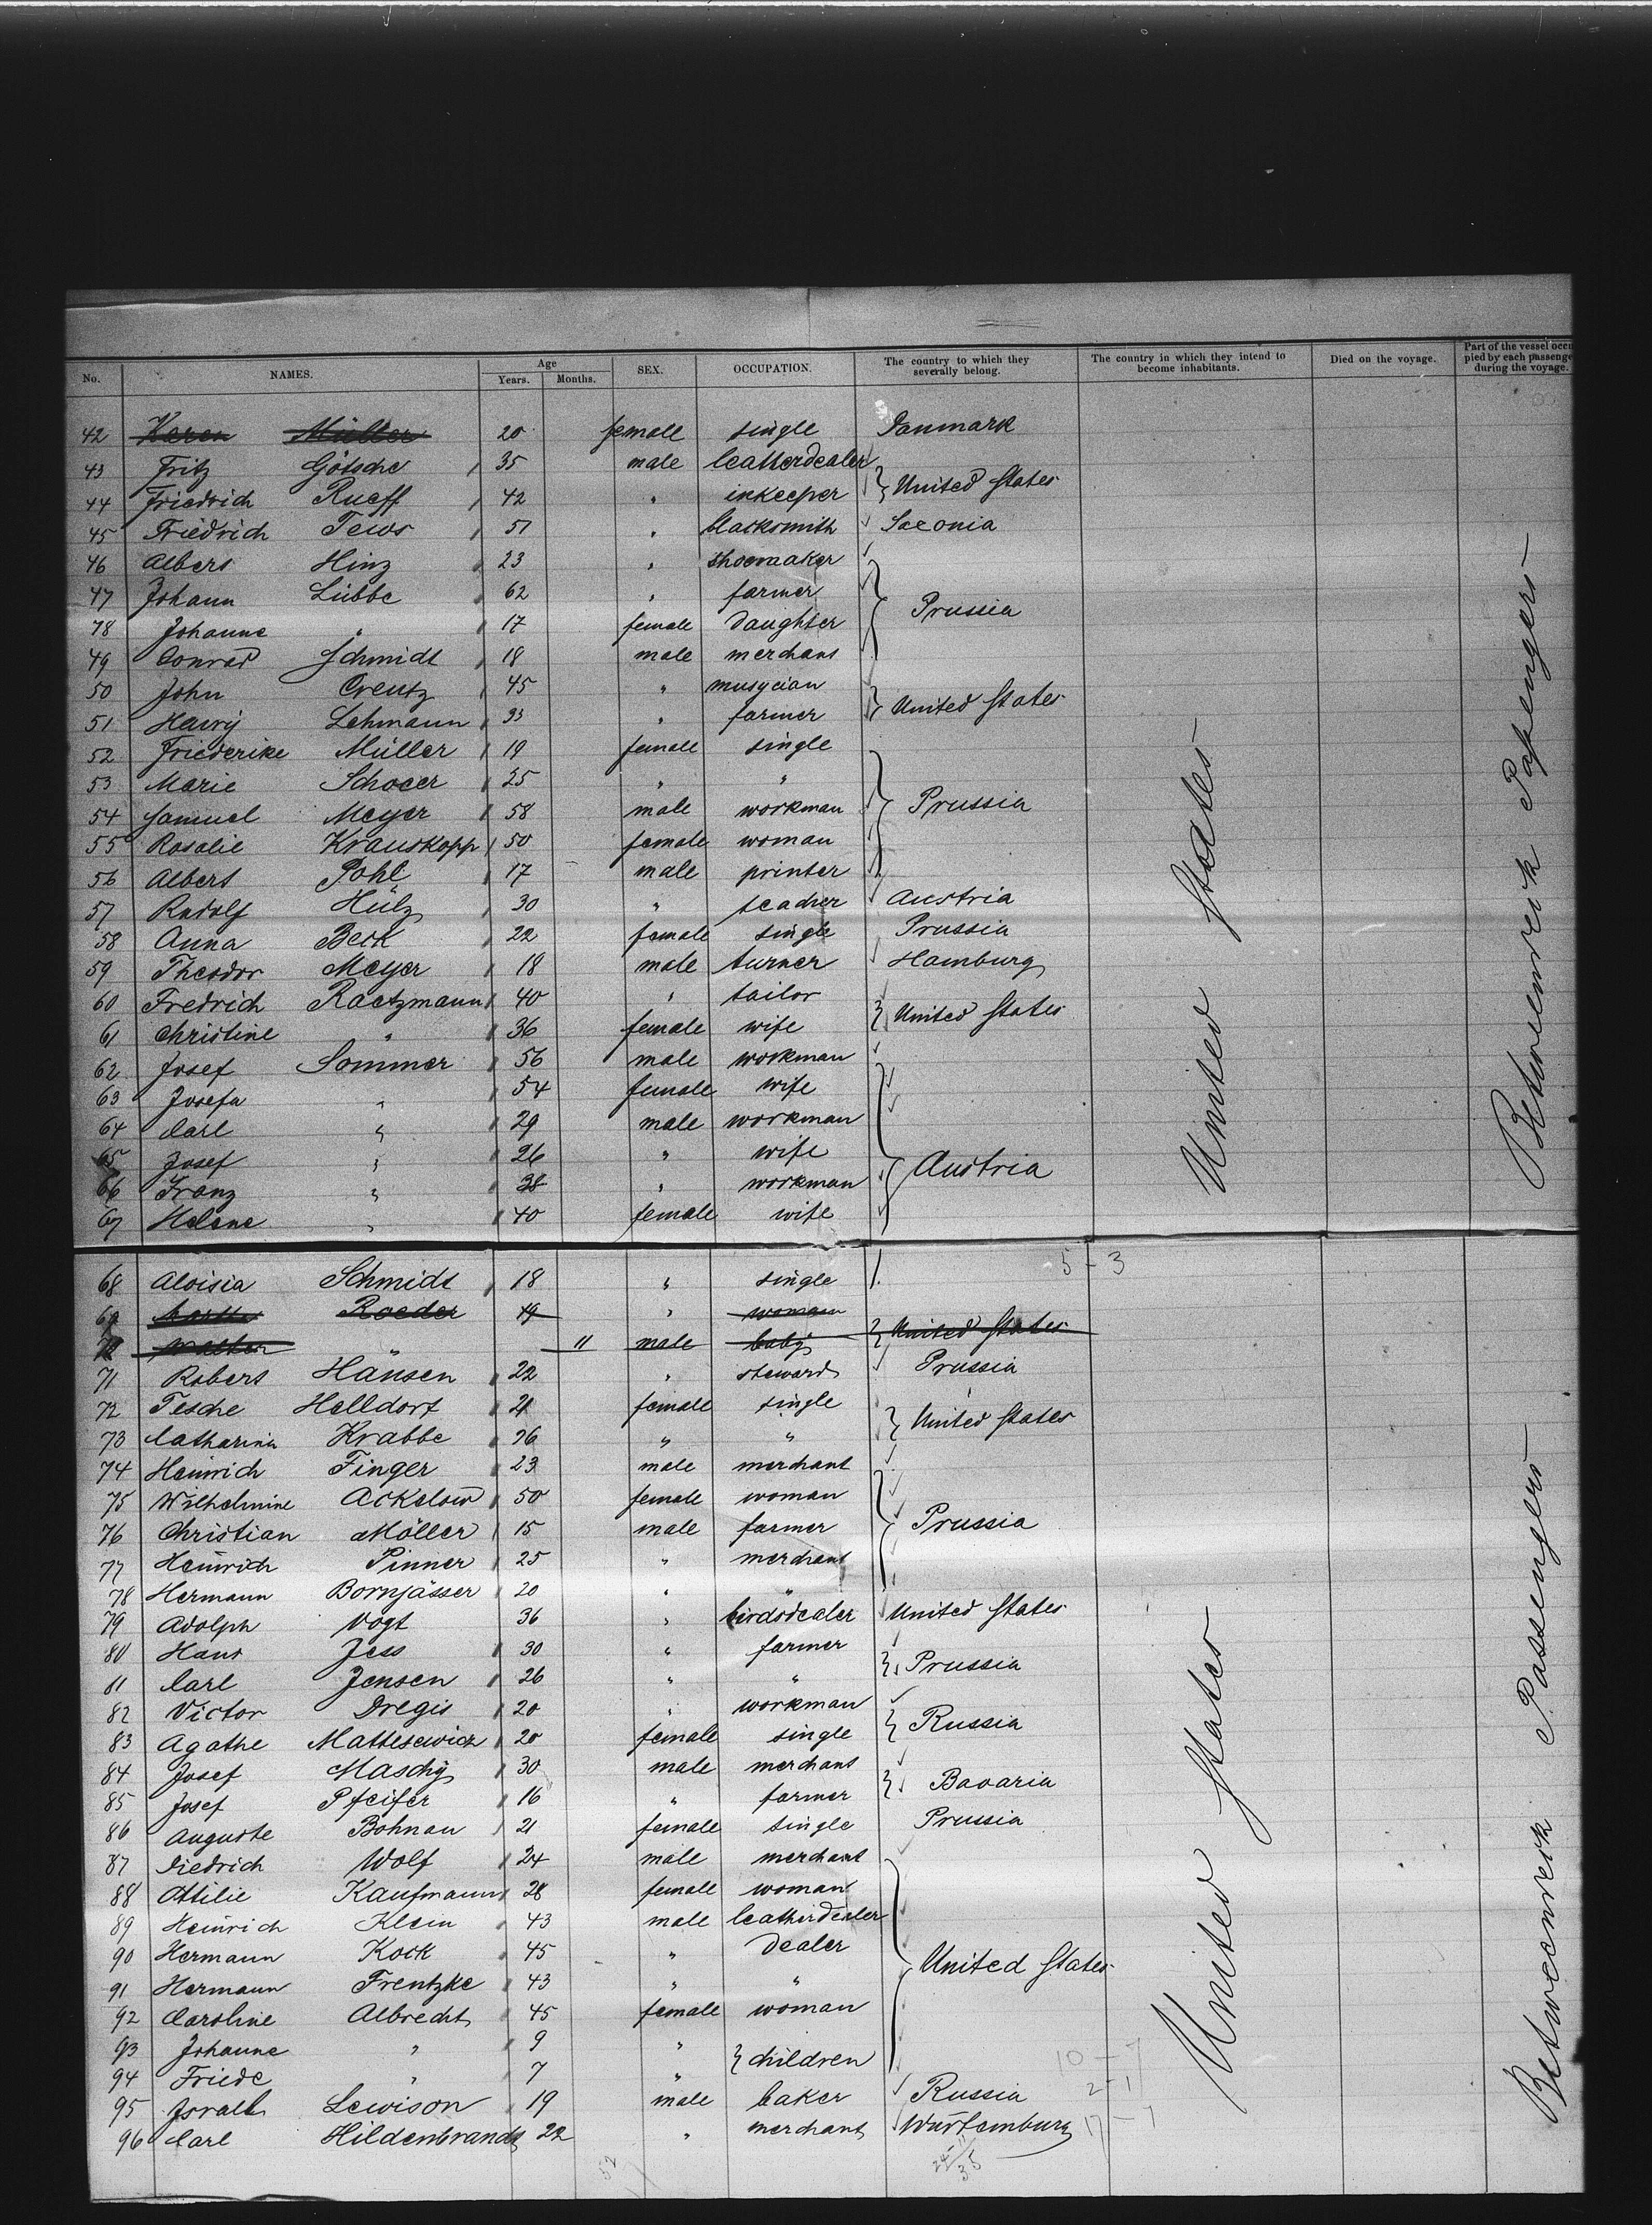 No. NAMES. Age Years. Months. SEX. OCCUPATION. The country to which they severally belong. The country in which they intend to become inhabitants. Died on the voyage. Part of the vessel occupied by each passenger during the voyage.
42 Karen Müller 20 female single Danmark
43 Fritz Götsche 35 male leatherdealer
44 Friedrich Rueff 42 " inkeeper } United States
45 Friedrich Tews 51 " blacksmith Saxonia
46 Albert Hinz 23 " shoemaker
47 Johann Lübbe 62 " farmer
78 Johanne " 17 female daughter } Prussia
49 Conrad Schmidt 18 male merchant
50 John Creutz 45 " musycian
51 Henry Lehmann 33 " farmer } United States
52 Friederike Müller 19 female single
53 Marie Schoeer 25 " "
54 Samuel Meyer 58 male workman } Prussia
55 Rosalie Krauskopp 50 female woman
56 Albert Pohl 17 male printer
57 Rudolf Hülz 30 " teacher Austria
58 Anna Beck 22 female single Prussia
59 Theodor Meyer 18 male turner Hamburg
60 Fredrich Raetzmann 40 " tailor
61 Christine " 36 female wife } United States
62 Josef Sommer 56 male workman
63 Josefa " 54 female wife
64 Carl " 29 male workman
65 Josef " 26 " wife } Austria
66 Franz " 38 " workman
67 Helene " 40 female wife
United States
Betweenreck Passengers
5 - 3
68 Aloisia Schmidt 18 " single
69 Roeder 49 " woman
" 11 male baby } United States
71 Robert Hansen 22 " steward Prussia
72 Tesche Helldorf 21 female single
73 Catharina Krabbe 26 " " } United States
74 Heinrich Finger 23 male merchant
75 Wilhelmine Ackelow 50 female woman
76 Christian Möller 15 male farmer } Prussia
77 Heinrich Pinner 25 " merchant
78 Hermann Bornjässer 20 " "
79 Adolph Vogt 36 " birdsdealer United States
80 Hans Jess 30 " farmer
81 Carl Jensen 26 " " } Prussia
82 Victor Dregis 20 " workman
83 Agathe Mattesewicz 20 female single } Russia
84 Josef Maschy 30 male merchant
85 Josef Pfeifer 16 " farmer } Bavaria
86 Auguste Bohnau 21 female single Prussia
87 Diedrich Wolf 24 male merchant
88 Ottilie Kaufmann 28 female woman
89 Heinrich Klein 43 male leatherdealer
90 Hermann Kock 45 " dealer
91 Hermann Frentzke 43 " " } United States
92 Caroline Albrecht 45 female woman
93 Johanne " 9 "
94 Friede " 7 " } children
95 Israel Lewison 19 male baker Russia
96 Carl Hildenbrandt 22 " merchant Würtemburg
United States
Betweenreck Passengers
10 - 7
2 - 1
17 - 7
52
24 - 11
35